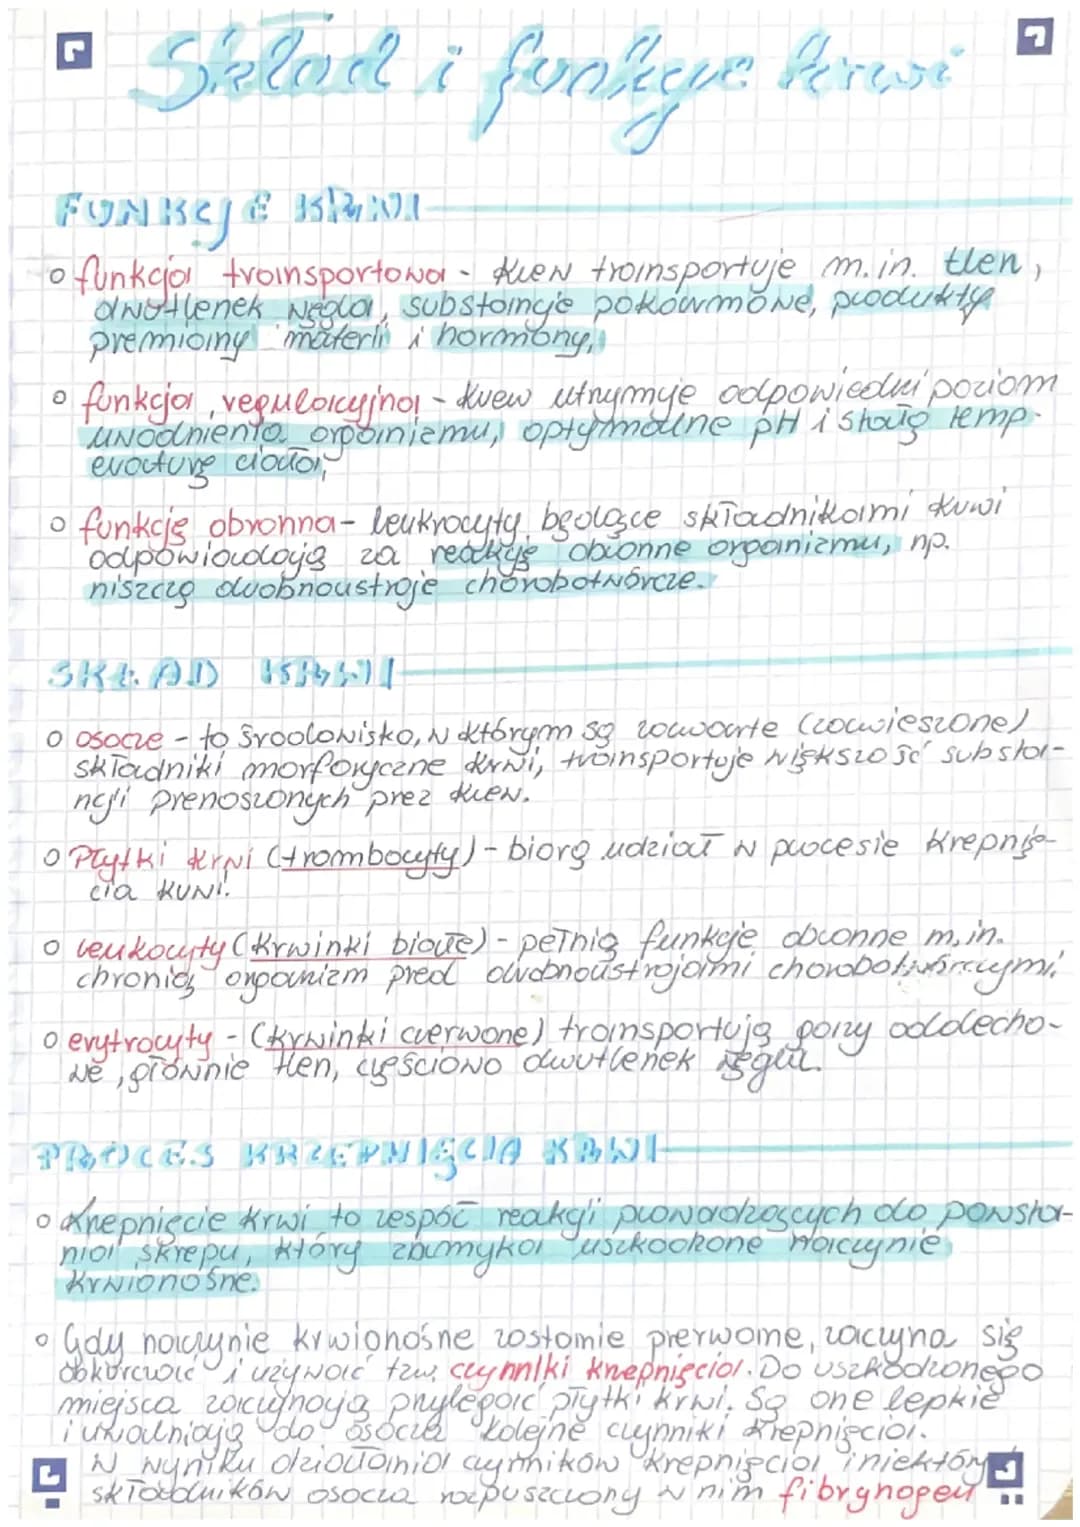 Skład i funkcje krwi
FUNKCJE KRWI
funkcja transportowa - krew transportuje m.in. tlen,
dwutlenek węgla, substancje pokarmowe, produkty
premiany materii i hormony,
funkcja regulacyjna - krew utrzymuje odpowiedni poziom
uwodnienia organizmu, optymalne pH i stałą temp-
eraturę ciała,
funkcję obronna - leukrocyty będące składnikami krwi
odpowiadają za reakcje obronne organizmu, np.
niszczą drobnoustroje chorobotwórcze.
SKŁAD KRWI
osocze - to środowisko, w którym są zawarte (zawieszone)
składniki morfotyczne krwi, transportuje większość substa-
ncji prenoszonych prez krew.
Płytki krwi (trombocyty) - biorą udział w procesie krepnię-
cia krwi.
leukocyty (krwinki białe) - pełnią funkcje obronne m.in.
chronią organizm pred drobnoustrojami chorobotwórczymi.
erytrocyty - (krwinki czerwone) transportują gazy oddecho-
we, głównie tlen, częściowo dwutlenek węgla.
PROCES KRZEPNIĘCIA KRWI
Krzepnięcie krwi to zespół reakcji prowadzących do powsta-
nia skrzepu, który zamyka uszkodzone naczynie
krwionośne.
Gdy naczynie krwionośne zostanie prerwane, zaczyna się
obkurczać i używać tzw. czynniki krzepnięcia. Do uszkodzonego
miejsca zaczynają przylegać płytki krwi. Są one lepkie
i uwalniają do osocza kolejne czynniki krzepnięcia.
W wyniku działania czynników krzepnięcia i niektóry
składników osocza rozpuszczony w nim fibrynogen